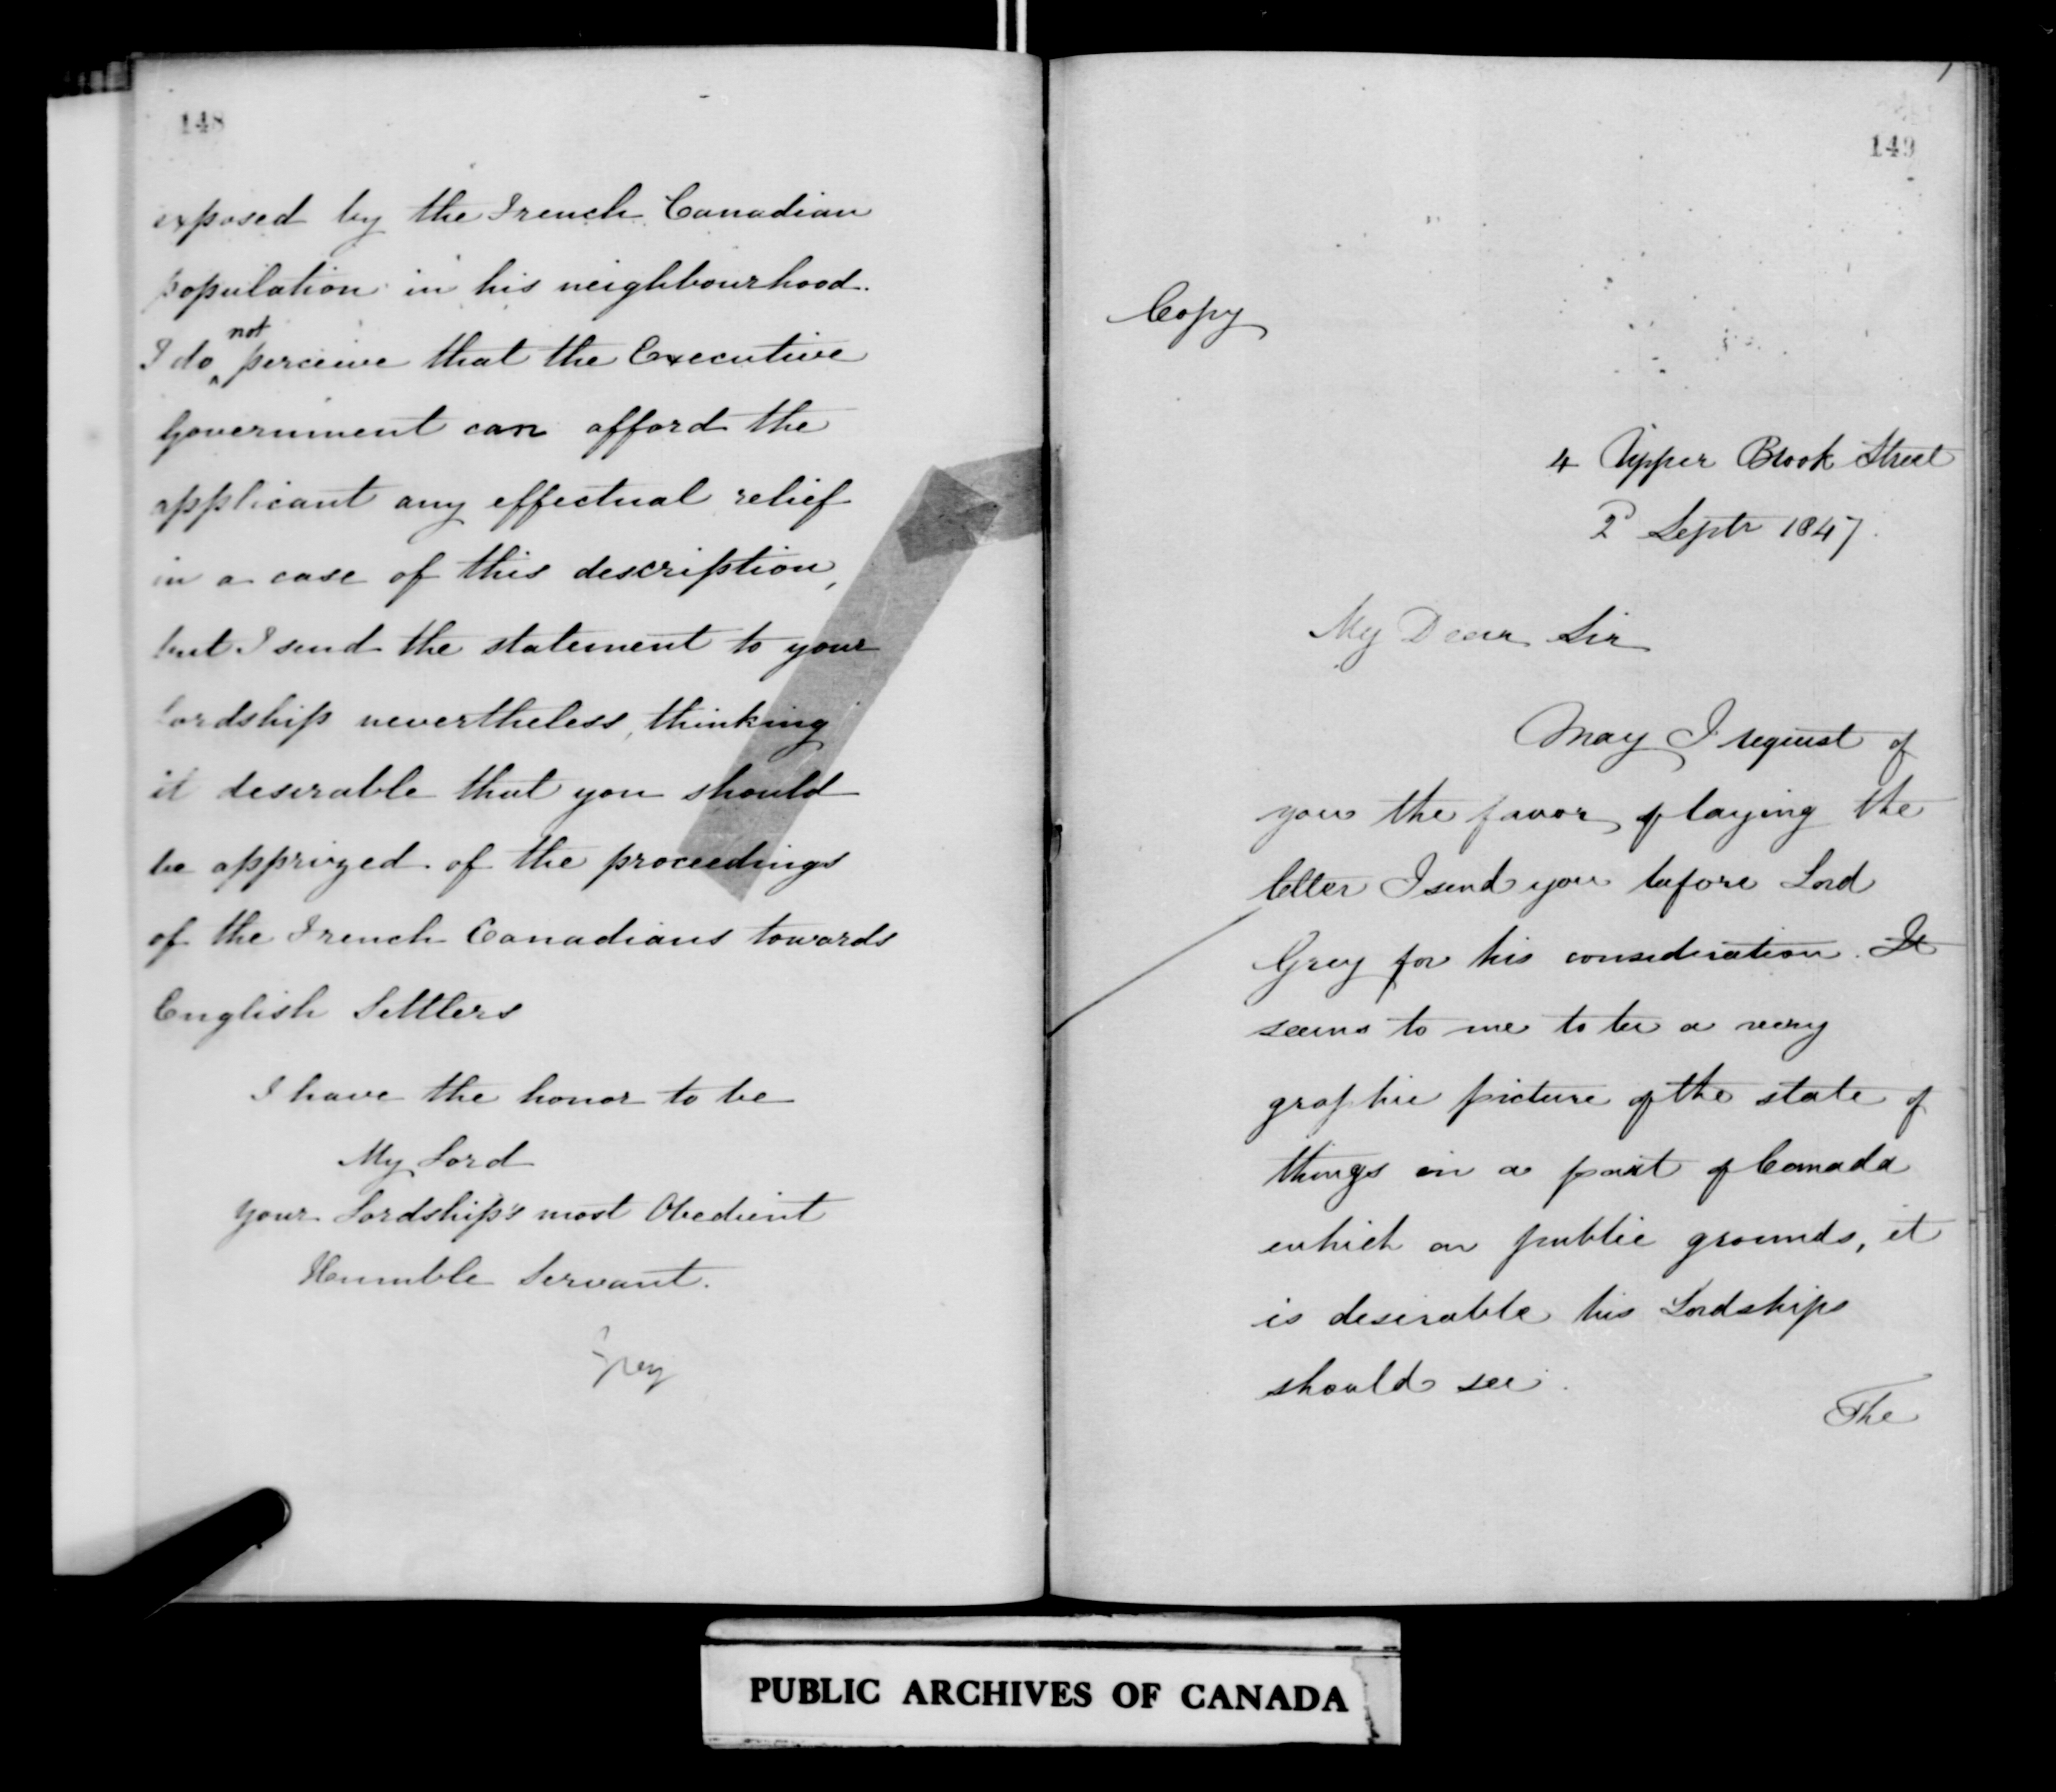 148
exposed by the French Canadian
population in his neighbourhood.
not
I do ‸ perceive that the Executive
Government can afford the
applicant any effectual relief
in a case of this description,
but I send the statement to your
Lordship nevertheless, thinking
it desirable that you should
be apprized of the proceedings
of the French Canadians towards
English Settlers
I have the honor to be
My Lord
your Lordship's most Obedient
Humble Servant.
Grey
149
Copy
4 Upper Brook Street
2 Septr 1847.
My Dear Sir
May I request of
you the favor of laying the
letter I send you before Lord
Grey for his consideration. It
seems to me to be a very
graphic picture of the state of
things in a part of Canada
which on public grounds, it
is desirable his Lordships
should see.
The
PUBLIC ARCHIVES OF CANADA